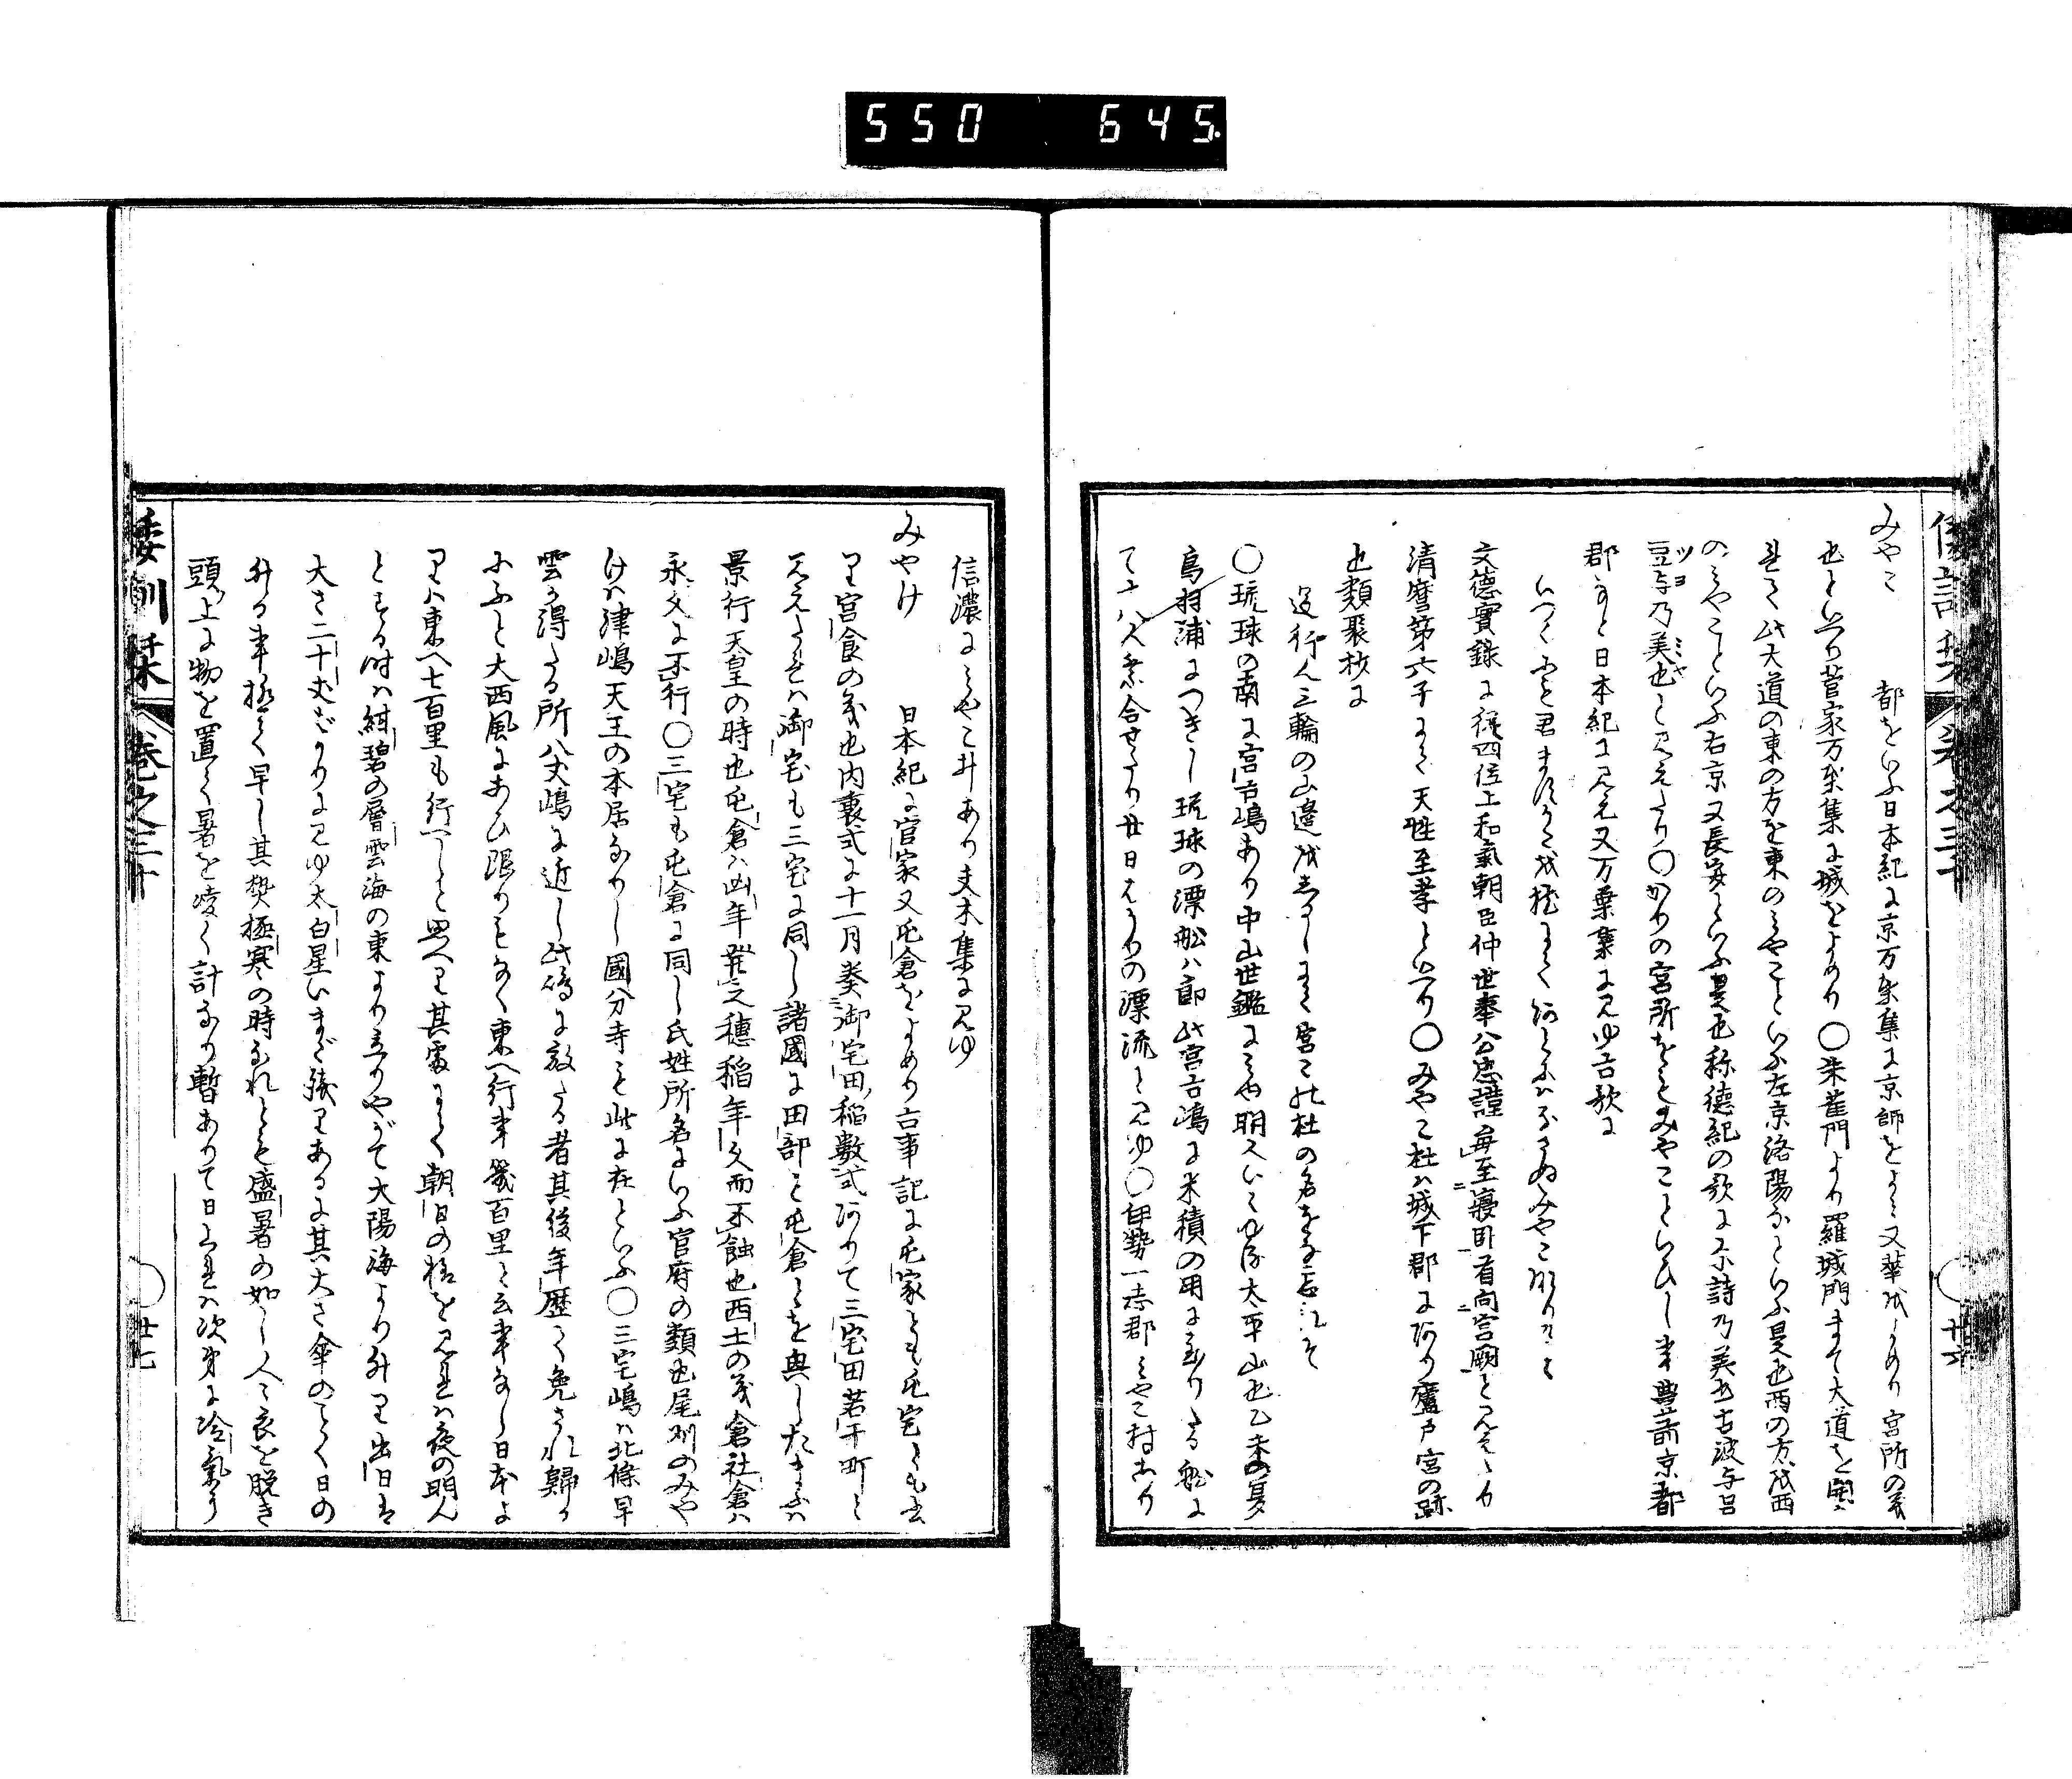 550 645.
みやこ 都をいふ日本紀に京万葉集に京師をよみ又華をよめり宮所の義
也といへり菅家万葉集に城をよめり○朱雀門より羅城門まて大道を開き
此大道の東の方を東のみやこといふ左京洛陽なといふ是也西の方を西
のみやこといふ右京又長安といふ是也称徳紀の歌に不詩乃美也古波与呂
豆与乃美也とみえたり○かりの宮所をもみやこといひし事豊前京都
ツヨ ミヤ
郡なと日本紀にみえ又万葉集にみゆ古歌に
いつくにと君まさは
文徳實録に従四位上和氣朝臣仲世奉公忠謹毎至寢卧首向宮闕とみえたり
清麿第六子にて天性至孝といへり○みやこ杜は城下郡にあり廬戸宮の跡
也類聚抄に
道行人三輪の山邉を
○琉球の南に宮古嶋あり中山世鑑にみゆ明人いはゆる太平山也乙未の夏
鳥羽浦につきし琉球の漂船は即此宮古嶋に米積の用に至りたる船に
て十八人乗合せたり廿日はかりの漂流とみゆ○伊勢一志郡みやこ村あり
信濃にみやこ井あり夫木集にみゆ
みやけ 日本紀に官家又屯倉をよめり古事記に屯家とも屯宅とも云
り宮食の義也内裏式に十一月奏御宅田稲数式ありて三宅田若干町と
みえたれは御宅も三宅に同し諸國に田部と屯倉とを興したまふは
景行天皇の時也屯倉は凶年發之穗稲年久而不蝕也西土の義倉社倉は
永久に不行○三宅も屯倉に同し氏姓所名にいふ官府の類也尾州のみや
けは津嶋天王の本居なりし國分寺も此に在といふ○三宅嶋は北條早
雲の得たる所八丈嶋に近し此嶋に放たる者其後年歴て免され歸る
にふと大西風にあひ限りもなく東へ行事幾百里と云事なし日本よ
りは東へ七百里も行へしと思へり其處にて朝日の様をみれは夜の明ん
とする時は紺碧の層雲海の東より立のやがて大陽海より升り出日は
大さ二十丈ばかりにみゆ太白星いまだ殘りあるに其大さ傘のことく日の
升る事極て早し其勢極寒の時なれとも盛暑の如し人々衣を脱き
頭上に物を置て暑を凌く計なり暫ありて日上れは次第に冷氣
倭訓栞 巻之三十 ○廿七